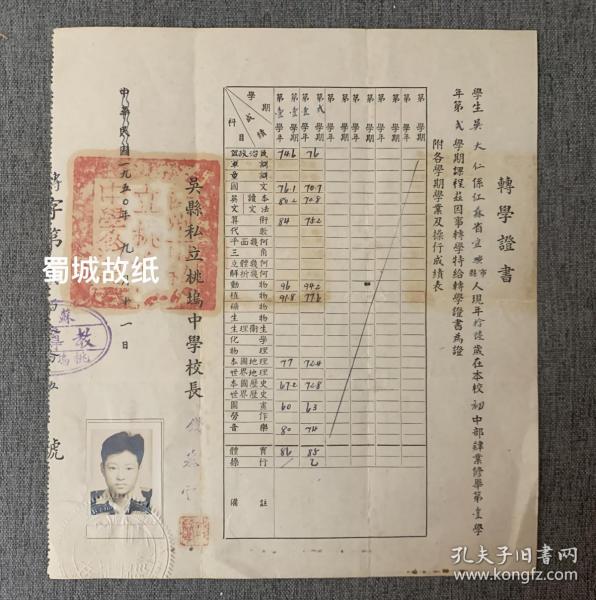 轉學證書
學生吳大仁係江蘇省宜興縣市人現年拾陸歲在本校初中部肄業修畢第壹學
年第弍學期課程茲因事轉學特給轉學證書為證
附各學期學業及操行成績表
學期
成績
科目
第壹學年第壹學期
第壹學年第弍學期
第 學年第 學期
第 學年第 學期
第 學年第 學期
第 學年第 學期
74.6 76
國文 76.1 70.7
英文 讀本 80.2 72.8
文法
算術 84 75.2
代數
平面幾何
三角
立體幾何
解析幾何
動物 96 94.2
植物 91.8 77.8
礦物
生物
生理衛生
化學
物理
本國地理 77 72.4
世界地理
本國歷史 67.2 72.8
世界歷史
圖畫 60 63
勞作
音樂 80 74
體育 86 85
操行 乙
備註
吳縣私立桃塢中學校長
中華民國一九五〇年九月十一日
轉字第
號
蜀城故纸
孔夫子旧书网
www.kongfz.com